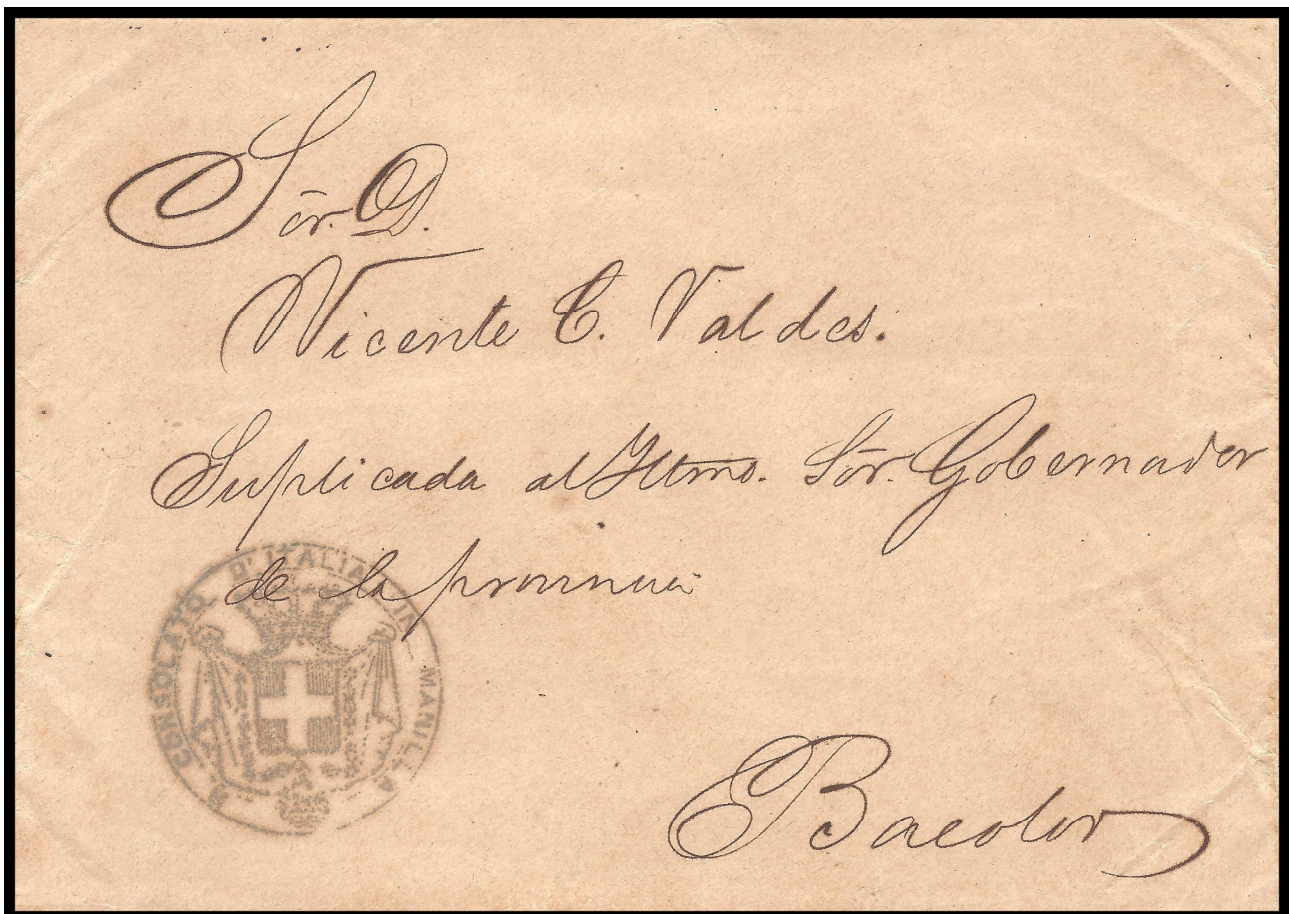 Sōr. D.
Vicente C. Valdes.
Suplicada al Yltmo. Sōr. Gobernador
de la provincia
R. CONSOLATO D'ITALIA IN MANILLA
Bacolor